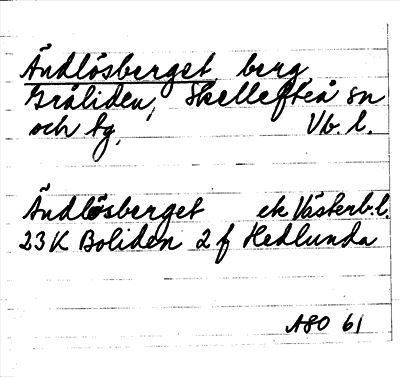 Ändlösberget berg
Gråliden, Skellefteå sn
och tg. Vb. l.
Ändlösberget ek Västerb.l.
23K Boliden 2 f Hedlunda
ASO 61